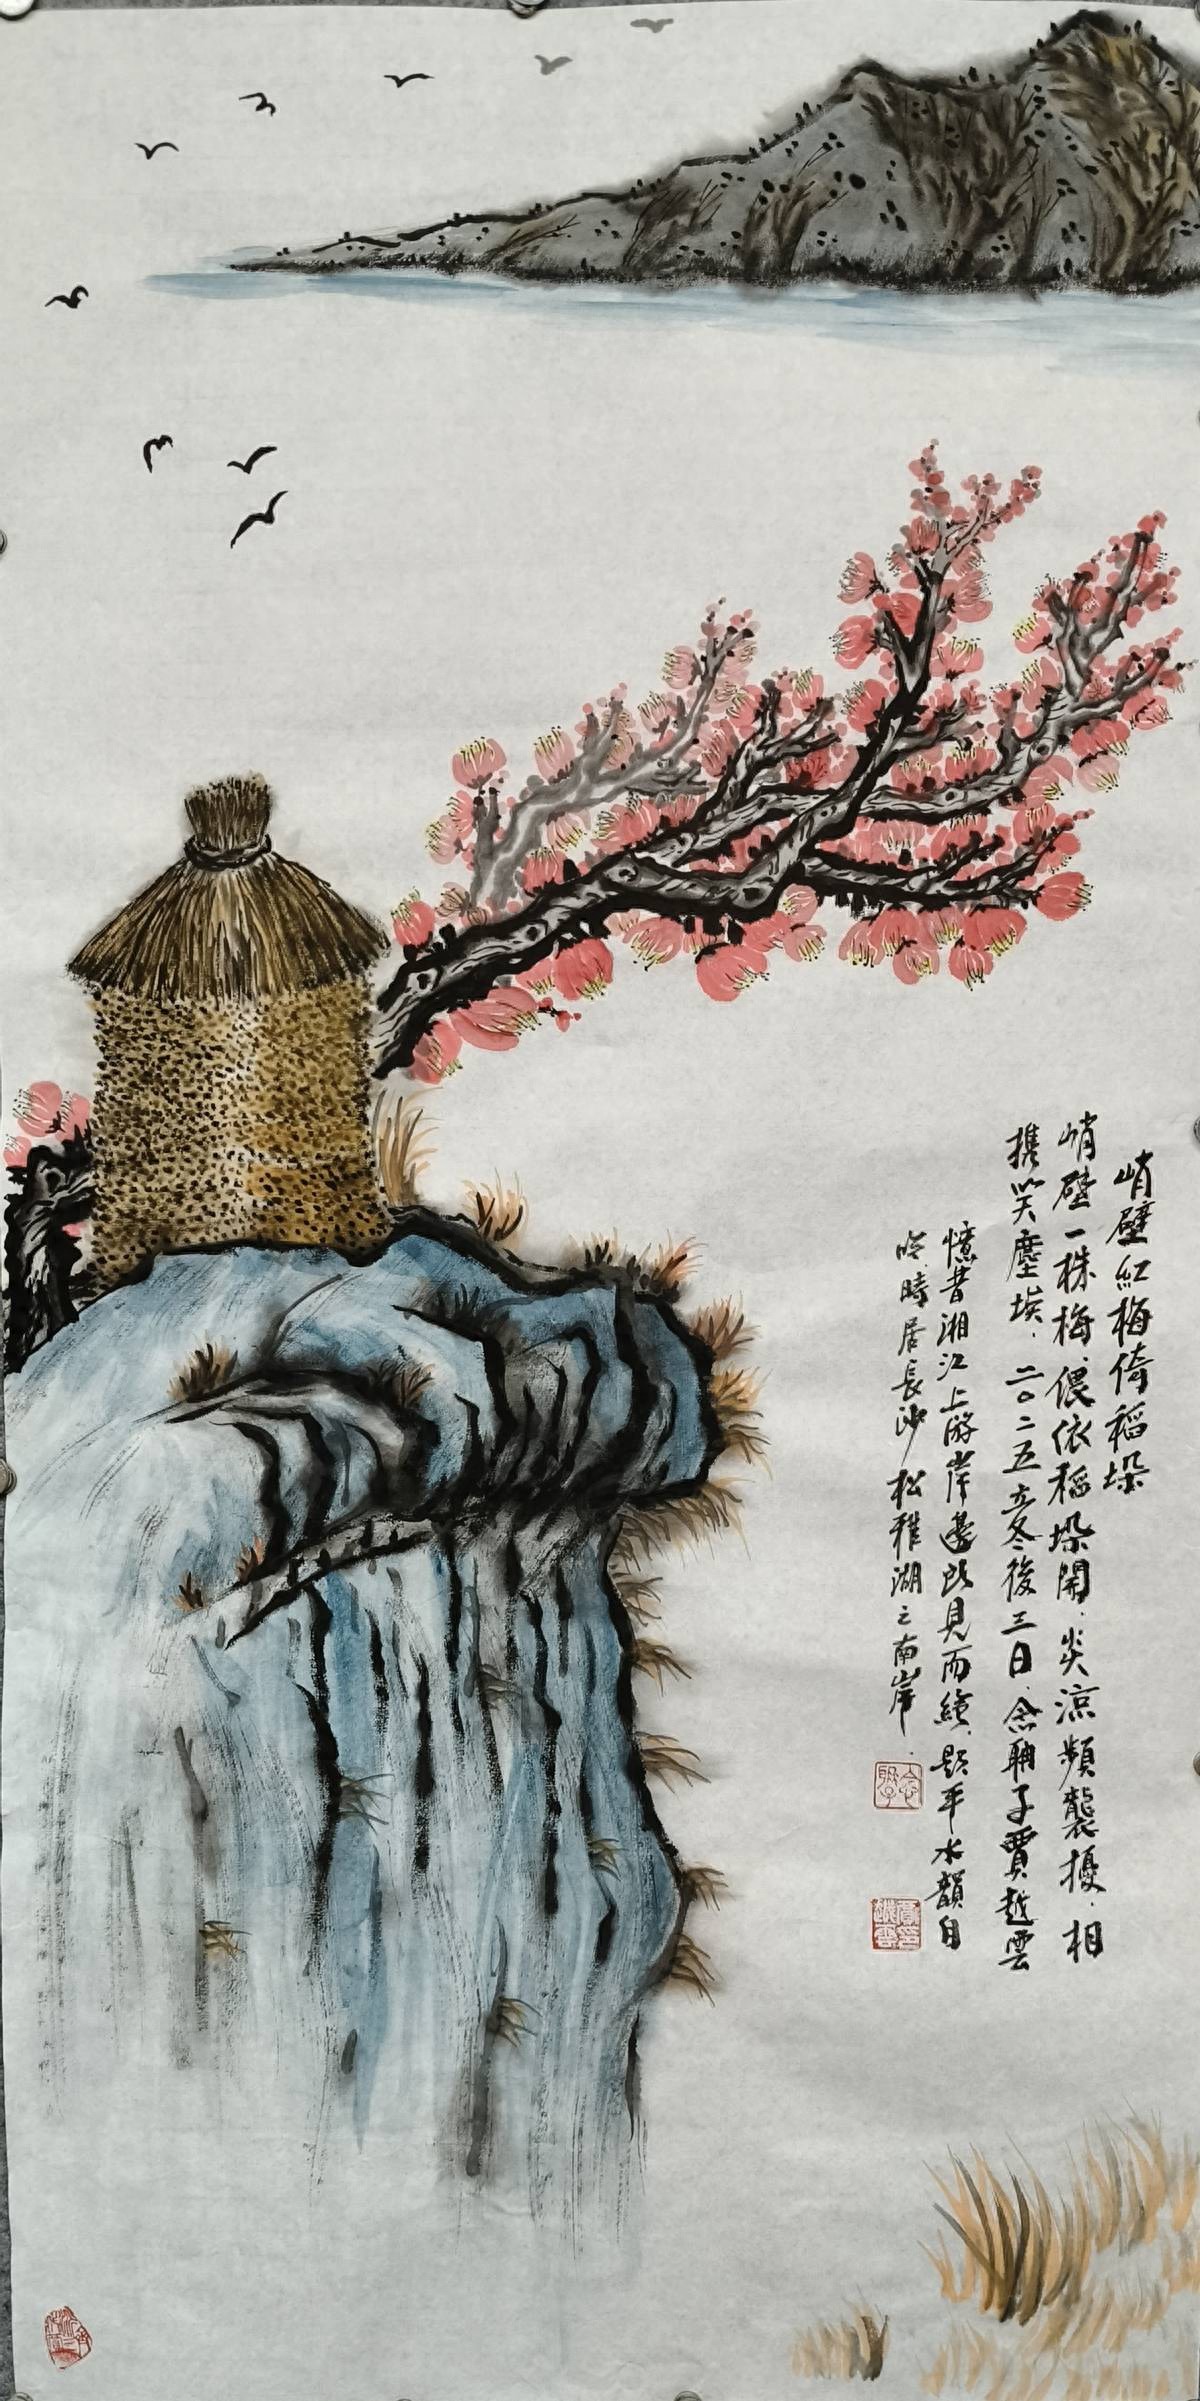 峭壁紅梅倚稻垛
峭壁一株梅偎依稻垛開炎涼頻襲擾相
攜笑塵埃二〇二五立冬後三日念聃子賈越雲
憶昔湘江上游岸邊所見而繪題平水韻自
吟時居長沙松雅湖之南岸